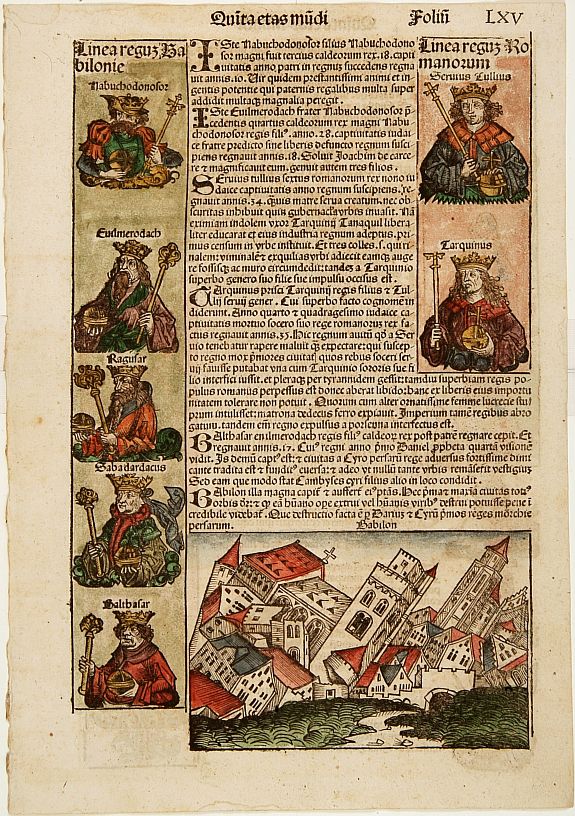 Quīta etas mūdi
Foliū LXV
Linea reguʒ Ba
bilonie
Nabuchodonosor
Euilmerodach
Ragusar
Sabadardacus
Balthasar
ISte Nabuchodonosor filius Nabuchodono
sor magni fuit tercius caldeorum rex. 18. capti
uitatis anno patri in regnuʒ succedens regna
uit annis. 10. Uir quidem prestantissimi animi et in
gentis potentie qui paternis regalibus multa super
addidit multaqʒ magnalia peregit.
ISte Euilmerodach frater Nabuchodonosor p̄
cedentis quartus caldeorum rex magni Nabu
chodonosor regis filiꝰ. anno. 28. captiuitatis iudai
ce fratre predicto sine liberis defuncto regnum susci
piens regnauit annis. 18. Soluit Joachim de carce
re et magnificauit eum. genuit autem tres filios.
SEruius tullius sextus romanorum rex nono iu
daice captiuitatis anno regnum suscipiens. re-
gnauit annis. 34. quis matre serua creatum. nec ob-
scuritas inhibuit quis gubernacula vrbis inuasit. Nā
eximiam indolem vxor Tarquinij Tanaquil libera-
liter educarat et eius industria regnum adeptus. pri-
mus censum in vrbe instituit. Et tres colles. s. quiri-
nalem: viminalē et exquilias vrbi adiecit eamqʒ auge
re fossisqʒ ac muro circumdedit: tandeʒ a Tarquinio
superbo genero suo filie sue impulsu occisus est.
TArquinus prisci Tarquinij regis filius et Tul
lij seruij gener. Cui superbo facto cognomen in
diderunt. Anno quarto et quadragesimo iudaice ca
ptiuitatis mortuo socero suo rege romanoruʒ rex fa-
ctus regnauit annis. 35. Hic regnum autū qđ a Ser
uio tenebatur rapere maluit qʒ expectare: qui suscep
to regno mox p̄mores ciuitatꝭ quos rebus soceri ser-
uij fauisse putabat vna cum Tarquinio sororis sue fi
lio interfici iussit. et pleraqʒ per tyrannidem gessit: tamdiu superbiam regis po-
pulus romanus perpessus est donec aberat libido: hanc ex liberis eius importu
nitatem tolerare non potuit. Quorum cum alter ornatissime femine lucrecie stu
prum intulisset: matrona dedecus ferro expiauit. Imperium tamē regibus abro
gatum. tandem em̄ regno expulsus a porsenna interfectus est.
BAlthasar euilmerodach regis filiꝰ caldeoꝝ rex post patrē regnare cepit. Et
regnauit annis. 17. Cuiꝰ regni anno p̄mo Daniel ꝓpheta quartā visionē
vidit. Is demū capꝰ est: et ciuitas a Cyro persarū rege aduersus fortissime dimi
cante tradita est et fundiꝰ euersa: et adeo vt nullū tante vrbis remāserit vestigiuʒ
Sed eam quo modo stat Cambyses cyri filius alio in loco condidit.
BAbilon illa magna capiť et aufertť ei ptās. Hec p̄ma et maxīa ciuitas totiꝰ
orbis dr̄: et qđ eā hūano ope extrui vel hūanis viribꝰ destrui potuisse pene ī
credibile videbať. Que destructio facta ē ꝑ Dariū et Cyrū p̄mos reges monarchie
persarum.
Babilon
Linea reguʒ Ro
manorum
Seruius Tullius
Tarquinus